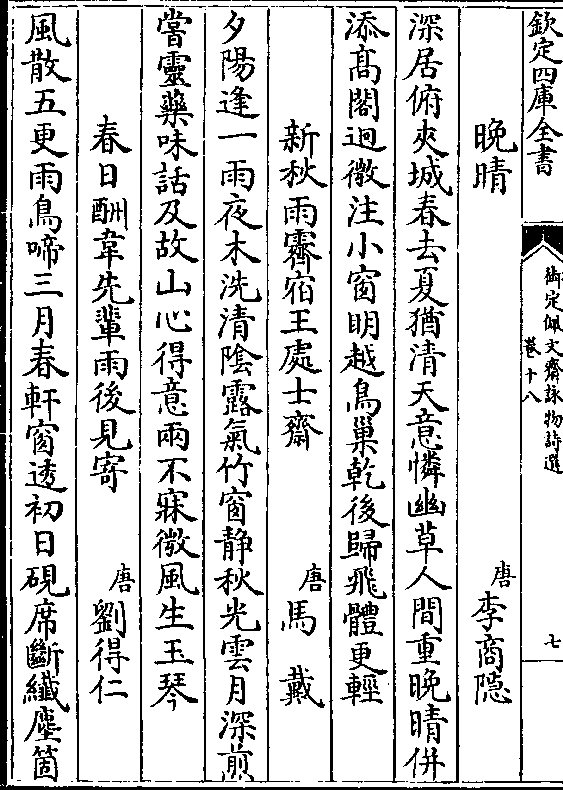 欽定四庫全書
御定佩文齋詠物詩選
卷十八
七
晚晴
唐李商隱
深居俯夾城春去夏猶清天意憐幽草人間重晚晴併
添髙閣迥微注小窗明越鳥巢乾後歸飛體更輕
新秋雨霽宿王處士齋
唐馬戴
夕陽逢一雨夜木洗清隂露氣竹窗静秋光雲月深煎
嘗靈藥味話及故山心得意兩不寐微風生玉琴
春日酬韋先輩雨後見寄
唐劉得仁
風散五更雨鳥啼三月春軒窗透初日硯席斷纖塵箇